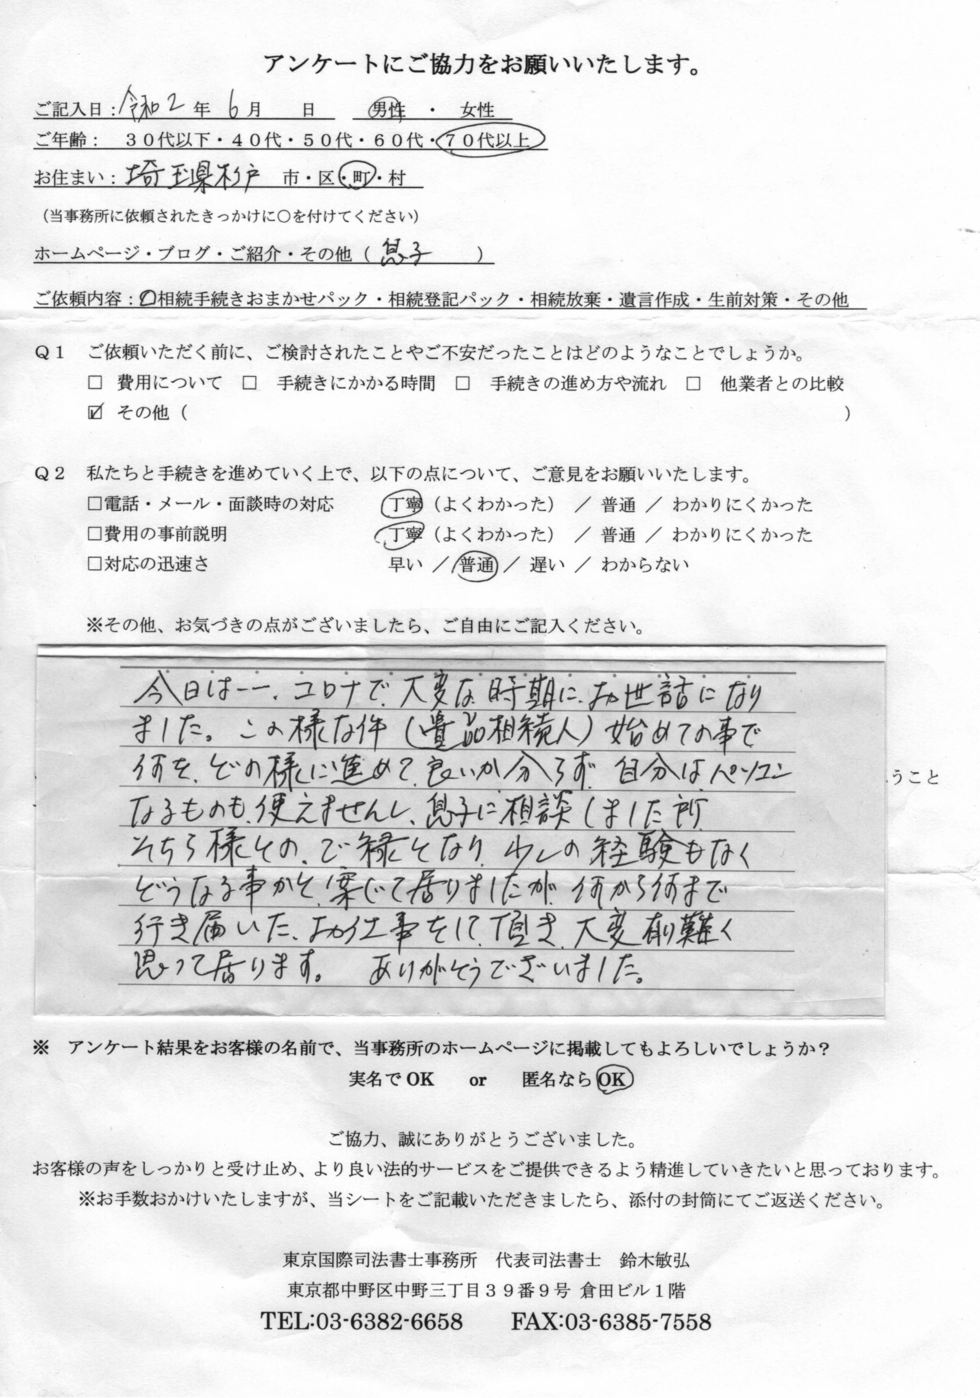 アンケートにご協力をお願いいたします。
ご記入日：令和2年 6月 日 男性 ・ 女性
ご年齢： 30代以下・40代・50代・60代・70代以上
お住まい：埼玉県杉戸 市・区・町・村
（当事務所に依頼されたきっかけに○を付けてください）
ホームページ・ブログ・ご紹介・その他（ 息子 ）
ご依頼内容：○相続手続きおまかせパック・相続登記パック・相続放棄・遺言作成・生前対策・その他
Q1 ご依頼いただく前に、ご検討されたことやご不安だったことはどのようなことでしょうか。
□ 費用について □ 手続きにかかる時間 □ 手続きの進め方や流れ □ 他業者との比較
☑ その他（ ）
Q2 私たちと手続きを進めていく上で、以下の点について、ご意見をお願いいたします。
□電話・メール・面談時の対応 丁寧（よくわかった） ／ 普通 ／ わかりにくかった
□費用の事前説明 丁寧（よくわかった） ／ 普通 ／ わかりにくかった
□対応の迅速さ 早い ／ 普通 ／ 遅い ／ わからない
※その他、お気づきの点がございましたら、ご自由にご記入ください。
今日は一一、コロナで大変な時期に、お世話になり
ました。この様な件（遺品相続人）始めての事で
何を、どの様に進めて良いか分らず 自分はパソコン
なるものも使えませんし、息子に相談しました所
そちら様との、ご縁となり、少しの経験もなく
どうなる事かと、案じて居りましたが、何から何まで
行き届いた、お仕事をして頂き、大変有難く
思って居ります。 ありがとうございました。
うこと
※ アンケート結果をお客様の名前で、当事務所のホームページに掲載してもよろしいでしょうか？
実名でOK or 匿名ならOK
ご協力、誠にありがとうございました。
お客様の声をしっかりと受け止め、より良い法的サービスをご提供できるよう精進していきたいと思っております。
※お手数おかけいたしますが、当シートをご記載いただきましたら、添付の封筒にてご返送ください。
東京国際司法書士事務所 代表司法書士 鈴木敏弘
東京都中野区中野三丁目39番9号 倉田ビル1階
TEL:03-6382-6658 FAX:03-6385-7558